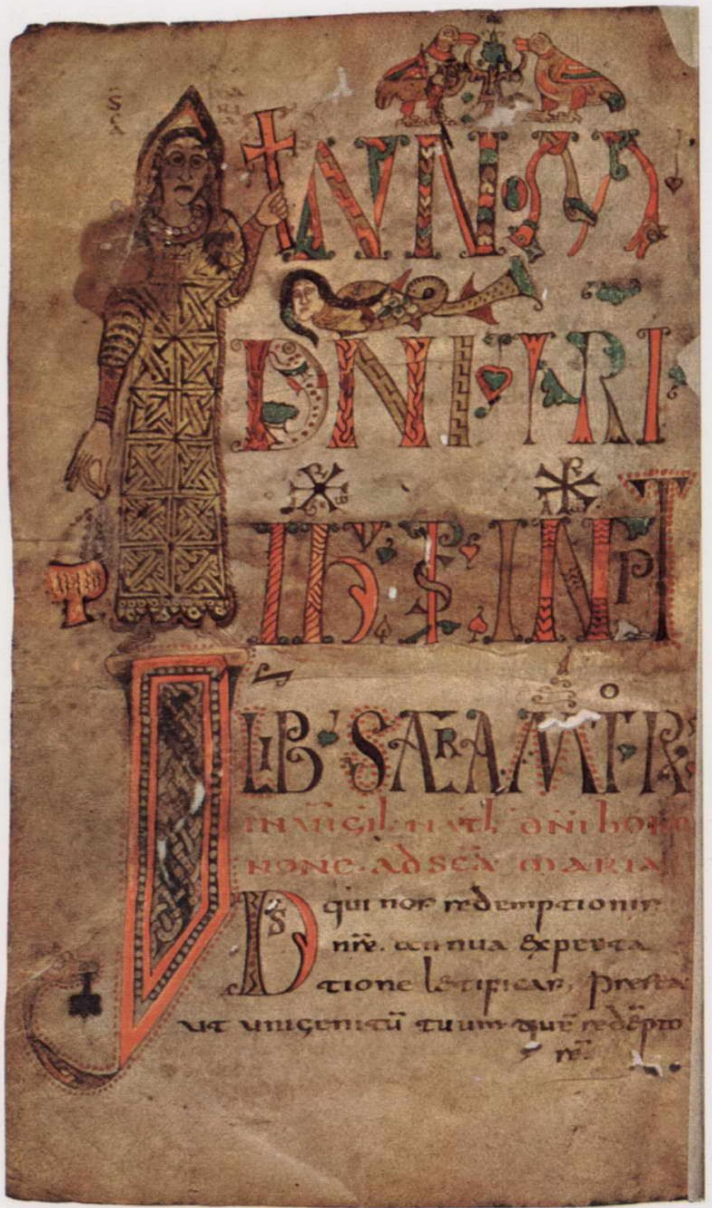 INNOM
DNI NTRI
IHU XPI INCPT
LIB SACRAMTOR
IN VIGIL NATL DNI HORA
NONE AD SCA MARIA
DS qui nos redemptionis
nrē annua expecta
tione letificas presta
ut unigenitū tuum quē redēpto
rē